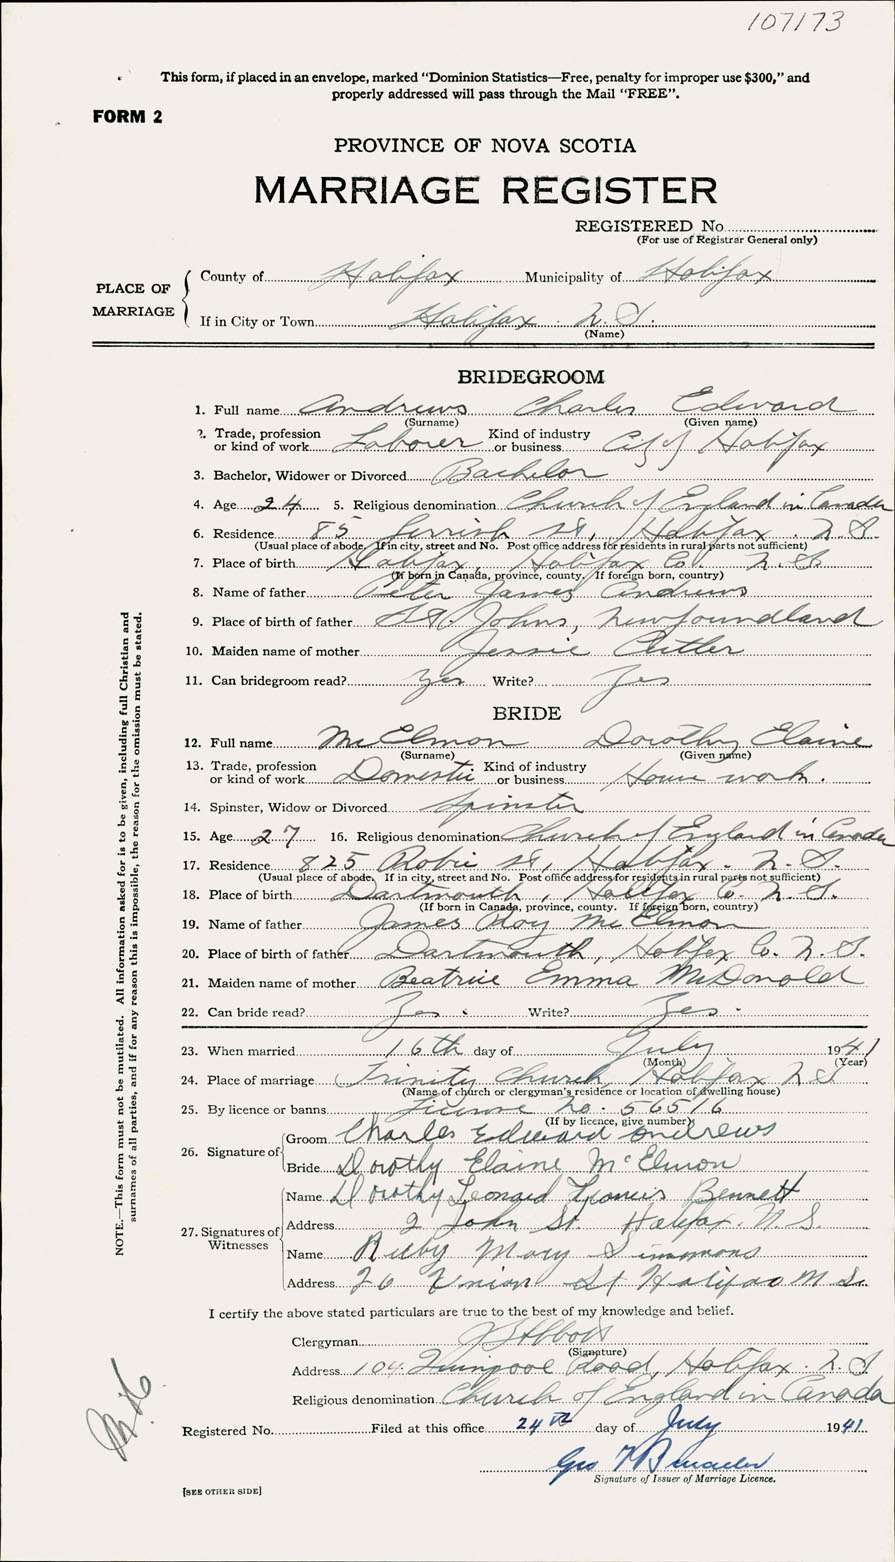 107173
This form, if placed in an envelope, marked “Dominion Statistics—Free, penalty for improper use $300,” and
properly addressed will pass through the Mail “FREE”.
FORM 2
PROVINCE OF NOVA SCOTIA
MARRIAGE REGISTER
REGISTERED No
(For use of Registrar General only)
PLACE OF MARRIAGE
County of Halifax Municipality of Halifax
If in City or Town Halifax . N.S.
(Name)
BRIDEGROOM
1. Full name Andrews Charles Edward
(Surname) (Given name)
2. Trade, profession or kind of work Laborer Kind of industry or business City of Halifax
3. Bachelor, Widower or Divorced Bachelor
4. Age 24 5. Religious denomination Church of England in Canada
6. Residence 85 Gerrish St, Halifax . N.S
(Usual place of abode. If in city, street and No. Post office address for residents in rural parts not sufficient)
7. Place of birth Halifax, Halifax Co. N.S.
(If born in Canada, province, county. If foreign born, country)
8. Name of father Peter James Andrews
9. Place of birth of father St. Johns, Newfoundland
10. Maiden name of mother Jessie Cutler
11. Can bridegroom read? Yes Write? Yes
BRIDE
12. Full name McElmon Dorothy Elaine
(Surname) (Given name)
13. Trade, profession or kind of work Domestic Kind of industry or business House work.
14. Spinster, Widow or Divorced Spinster
15. Age 27 16. Religious denomination Church of England in Canada
17. Residence 825 Robie St, Halifax. N.S.
(Usual place of abode. If in city, street and No. Post office address for residents in rural parts not sufficient)
18. Place of birth Dartmouth, Halifax Co. N.S.
(If born in Canada, province, county. If foreign born, country)
19. Name of father James Roy McElmon
20. Place of birth of father Dartmouth, Halifax Co. N.S.
21. Maiden name of mother Beatrice Emma McDonald
22. Can bride read? Yes . Write? Yes .
23. When married 16th day of July 1941
(Month) (Year)
24. Place of marriage Trinity Church, Halifax N S
(Name of church or clergyman's residence or location of dwelling house)
25. By licence or banns License No. 56516
(If by licence, give number)
26. Signature of
Groom Charles Edward Andrews
Bride Dorothy Elaine McElmon
27. Signatures of Witnesses
Name Dorothy Leonard Francis Bennett
Address 2 John St. Halifax. N.S.
Name Ruby Mary Simmons
Address 26 Union St Halifax N.S.
I certify the above stated particulars are true to the best of my knowledge and belief.
Clergyman
(Signature)
Address 104 Road, Halifax . N.S
Religious denomination Church of England in Canada
Registered No. Filed at this office 24th day of July 1941
Geo
Signature of Issuer of Marriage Licence.
[SEE OTHER SIDE]
NOTE.—This form must not be mutilated. All information asked for is to be given, including full Christian and
surnames of all parties, and if for any reason this is impossible, the reason for the omission must be stated.